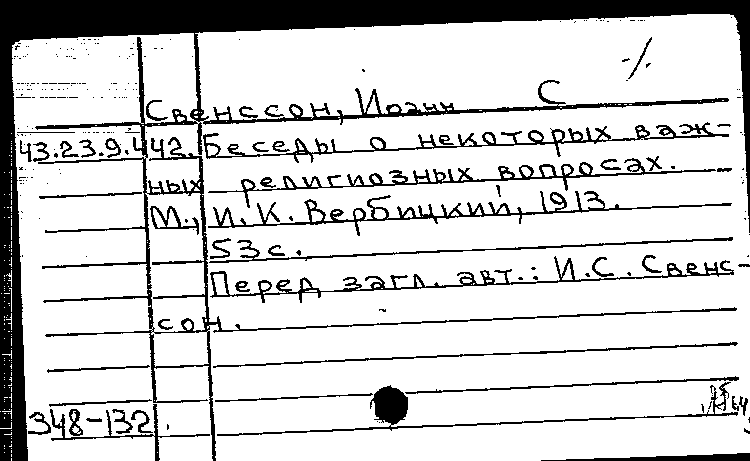 Свенссон, Иоанн С
43.23.9.442. Беседы о некоторых важ-
ных религиозных вопросах.
М., И.К. Вербицкий, 1913.
53 с.
Перед загл. авт.: И.С. Свенс-
сон.
348-132